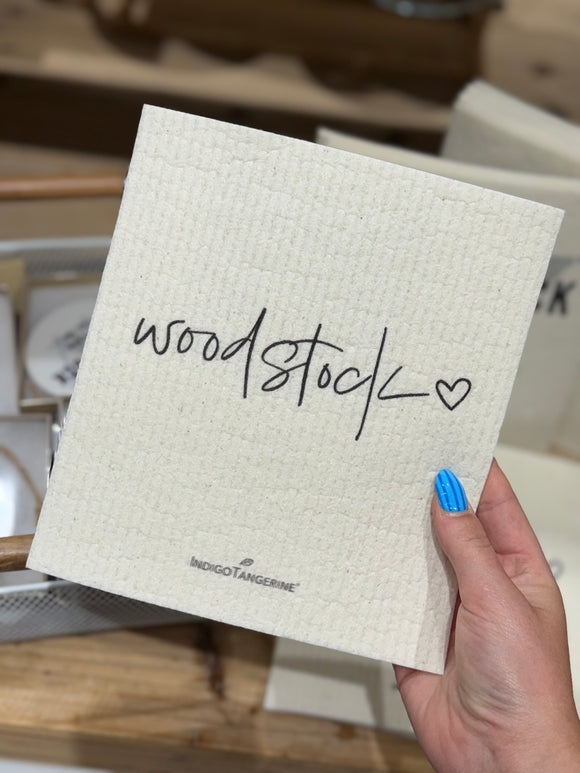 woodstock♡
INDIGOTANGERINE®
CK